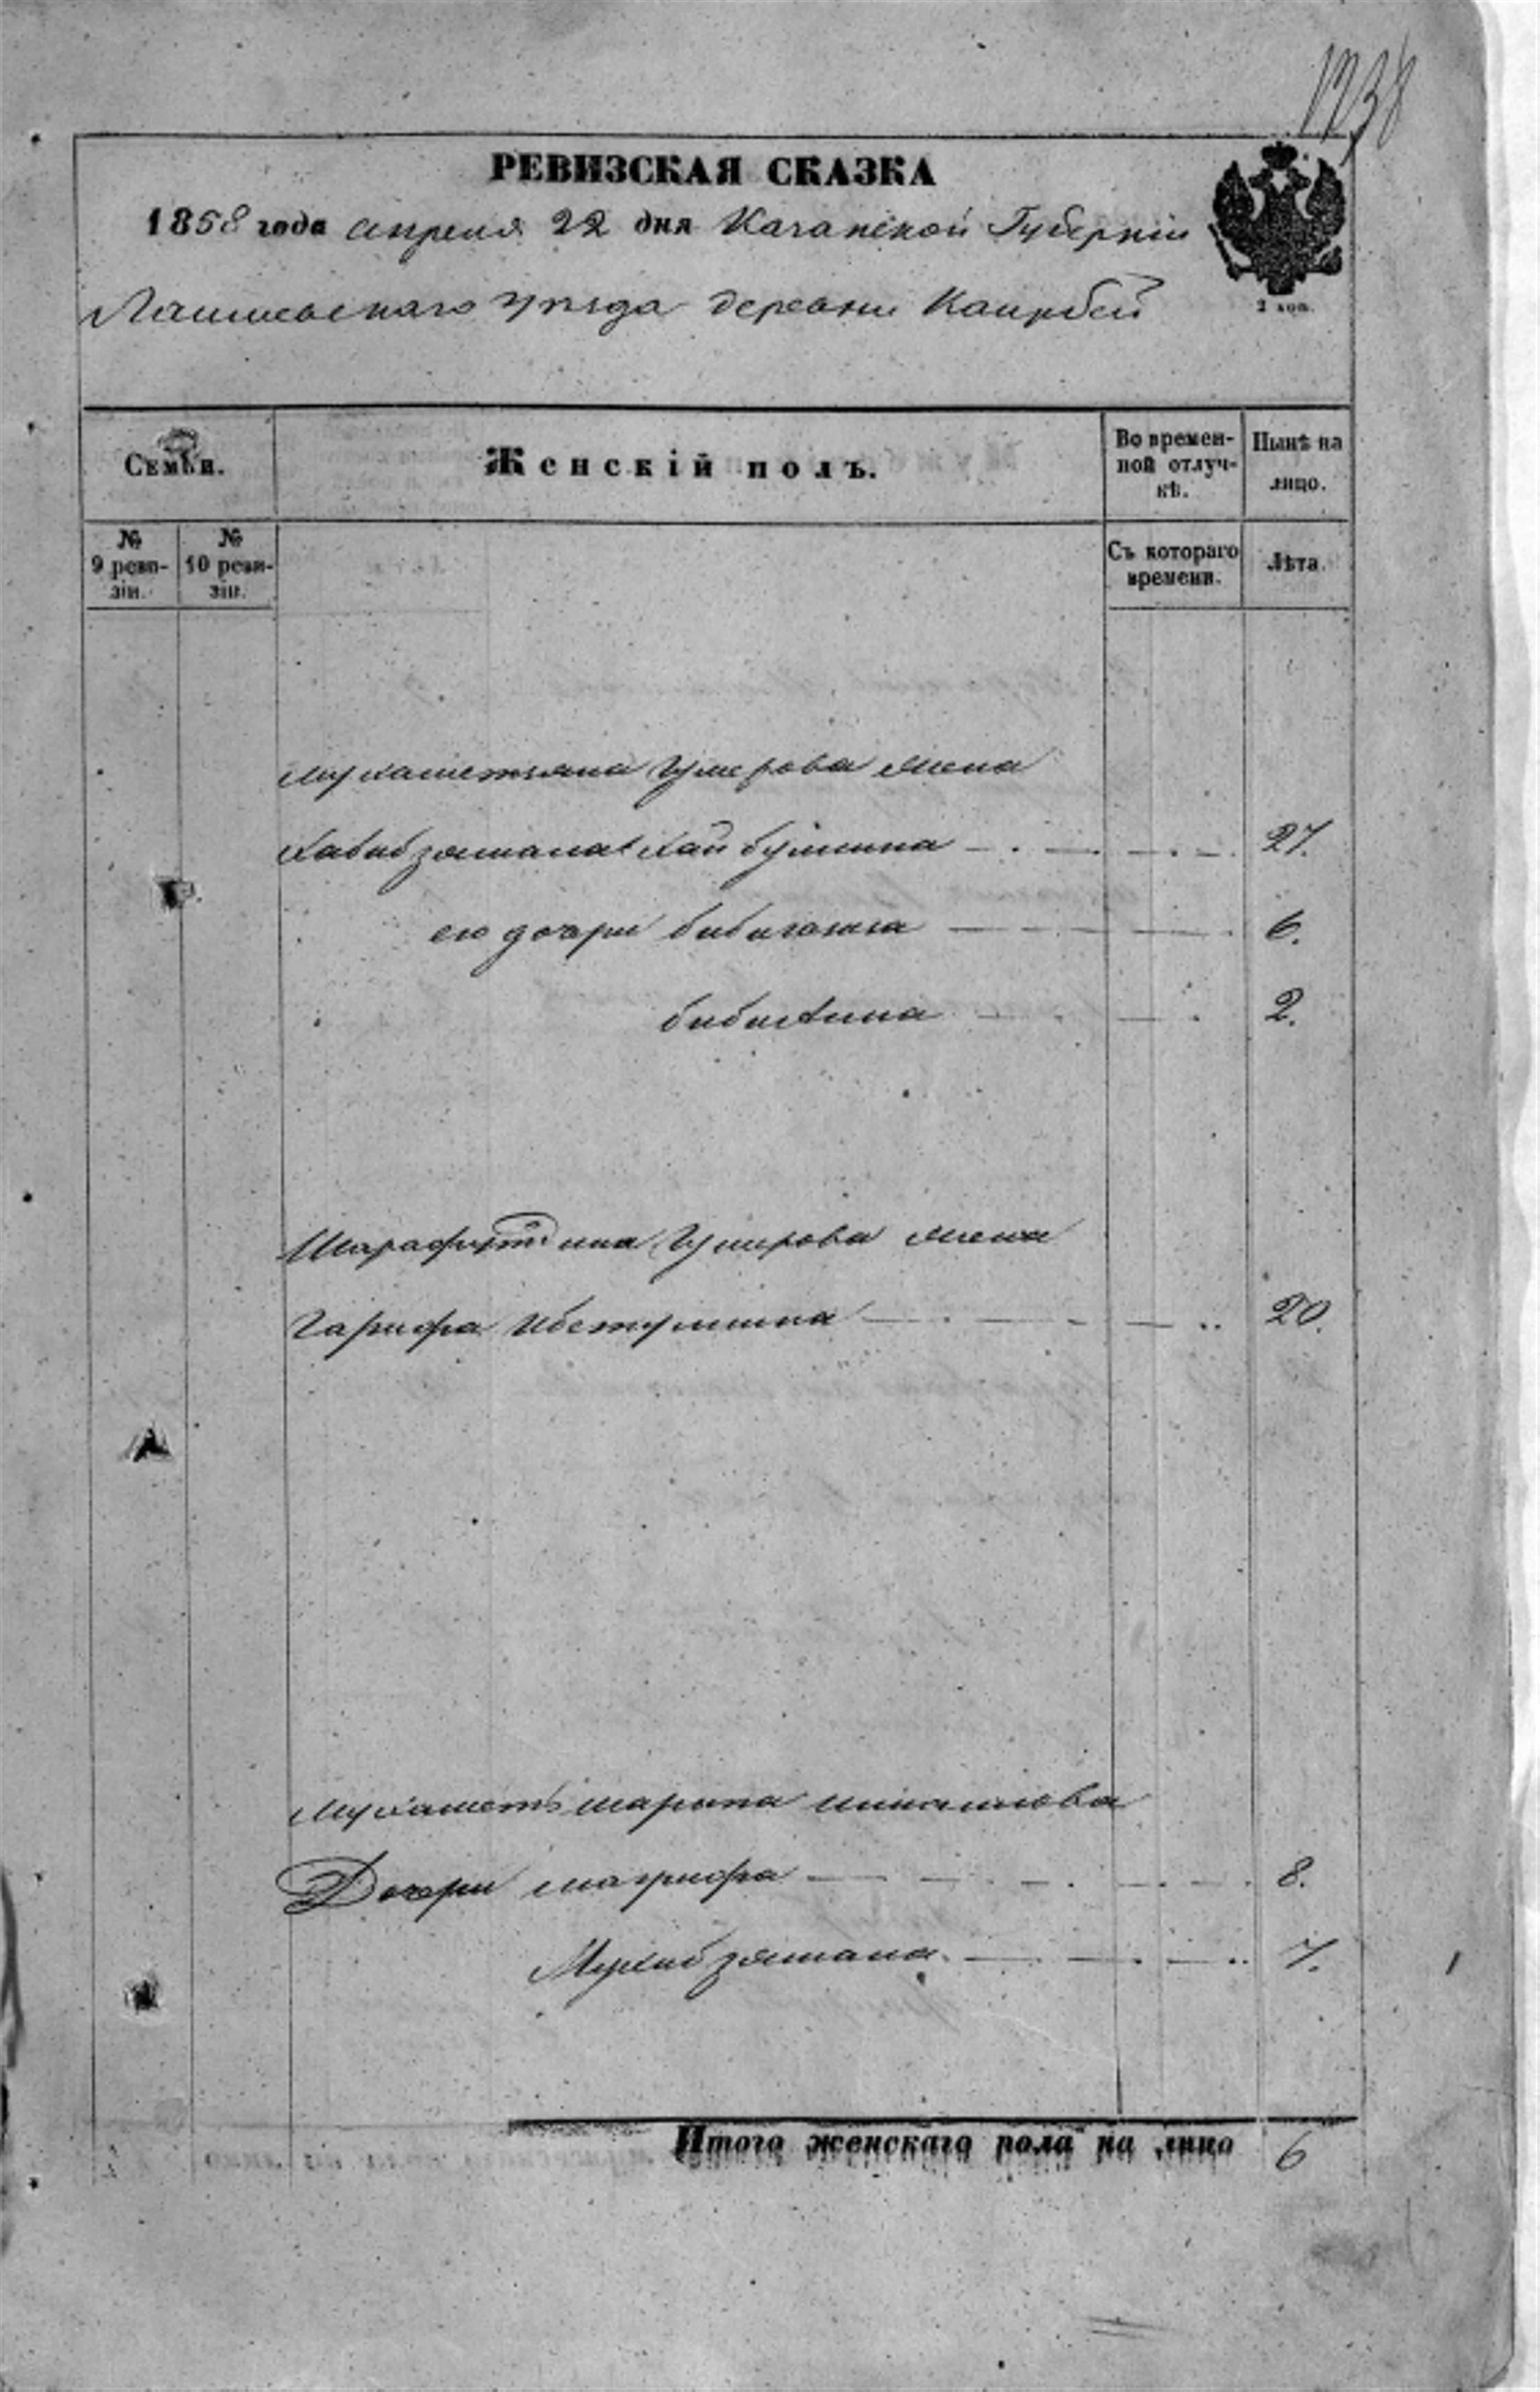 1238
РЕВИЗСКАЯ СКАЗКА
1858 года апреля 22 дня Казанской Губерніи
Лаишевскаго уѣзда деревни Каирбей
2 коп.
Семьи.
Женскій полъ.
Во времен-
ной отлуч-
кѣ.
Нынѣ на
лицо.
№
9 реви-
зіи.
№
10 реви-
зіи.
Съ котораго
времени.
Лѣта.
Мухаметзяна Гумерова жена
Хабибзямала Хайбулина 27.
его дочери бибигайша 6.
2.
Шарафутдина Гумирова жена
Гарифа 20.
Мухаметъ шарипа
Дочери магруфа 8.
Мухибзямала 7.
Итого женскаго пола на лицо 6